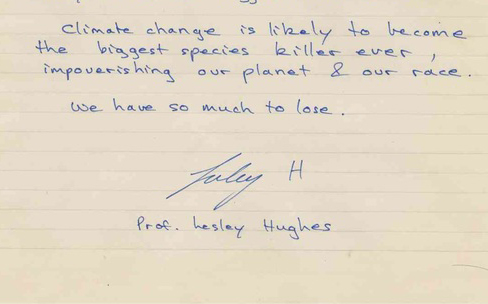 Climate change is likely to become
the biggest species killer ever,
impoverishing our planet & our race.
We have so much to lose.
Lesley H
Prof. Lesley Hughes